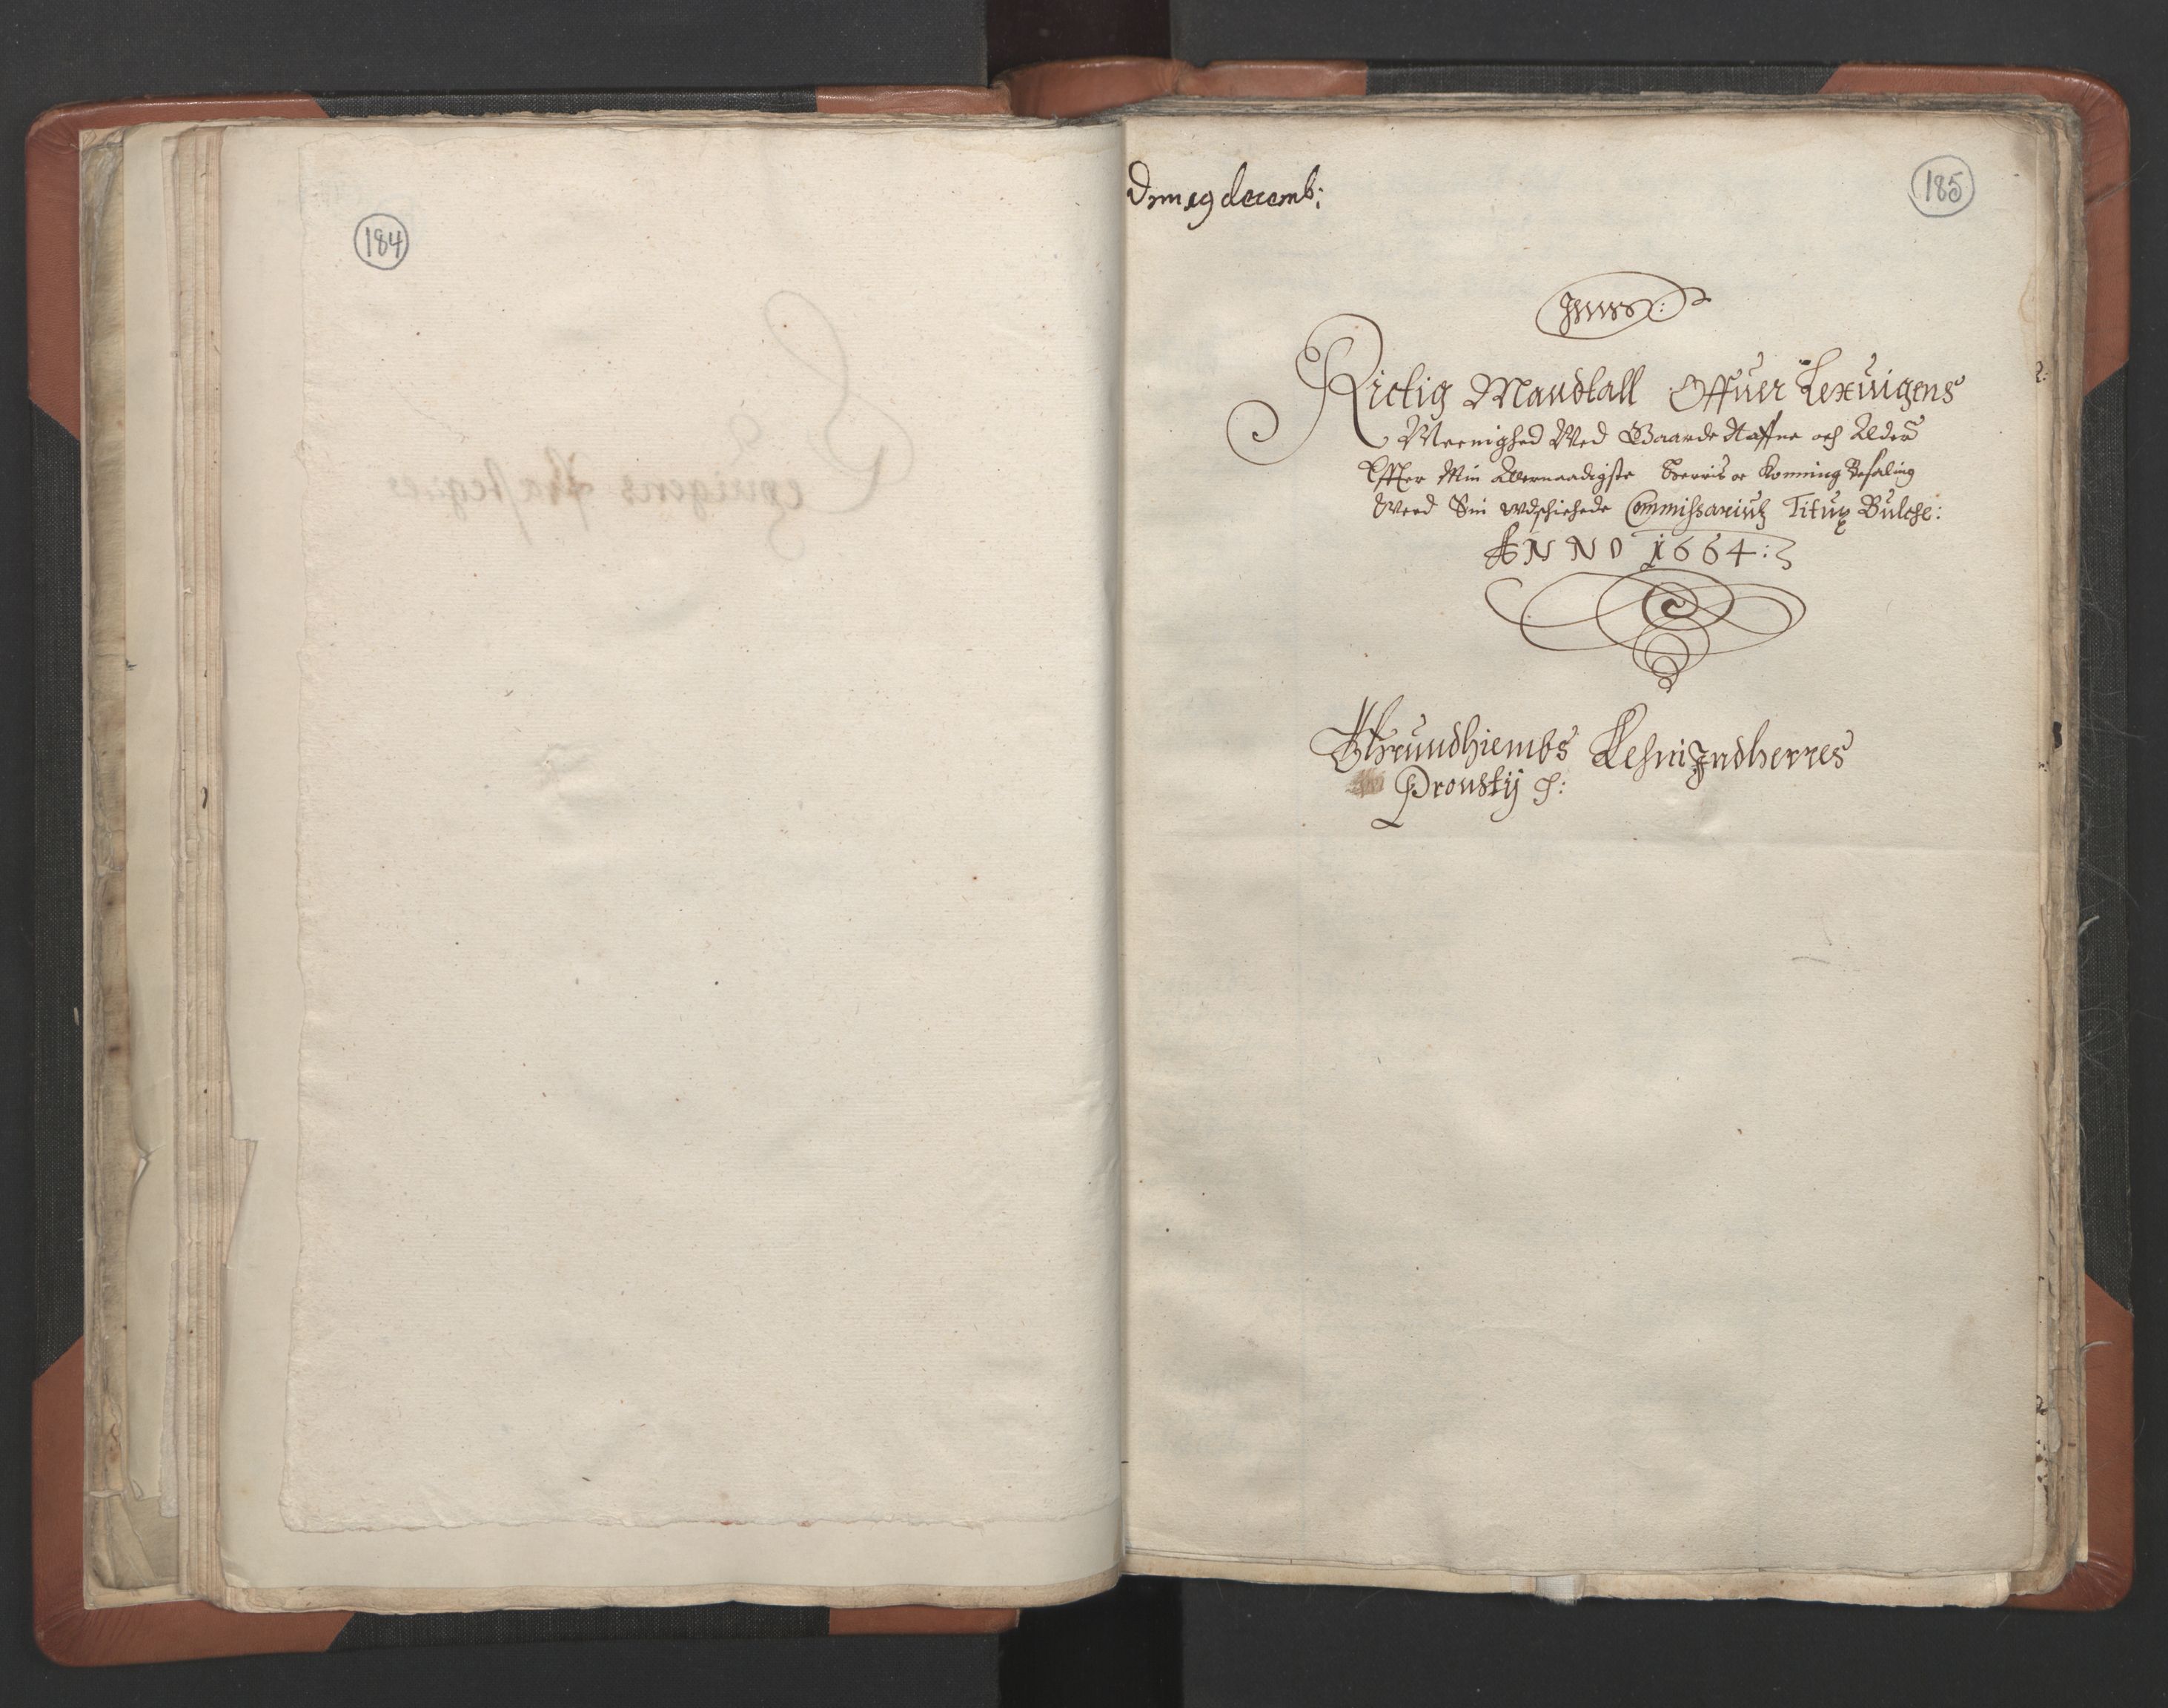 184
185
Dem 19 decemb:
Rictig Mandtall Offuer Lexuigens
Meenighed Med Gaarde Naffne och Alder
Effter Min Allernaadigste Herris oc Konning Befaling
Weed Sin Wdschichede Commissariuß Titus Bulche:
ANNO 1664:
Thrundhiembs Lehn Indherres
Proustij